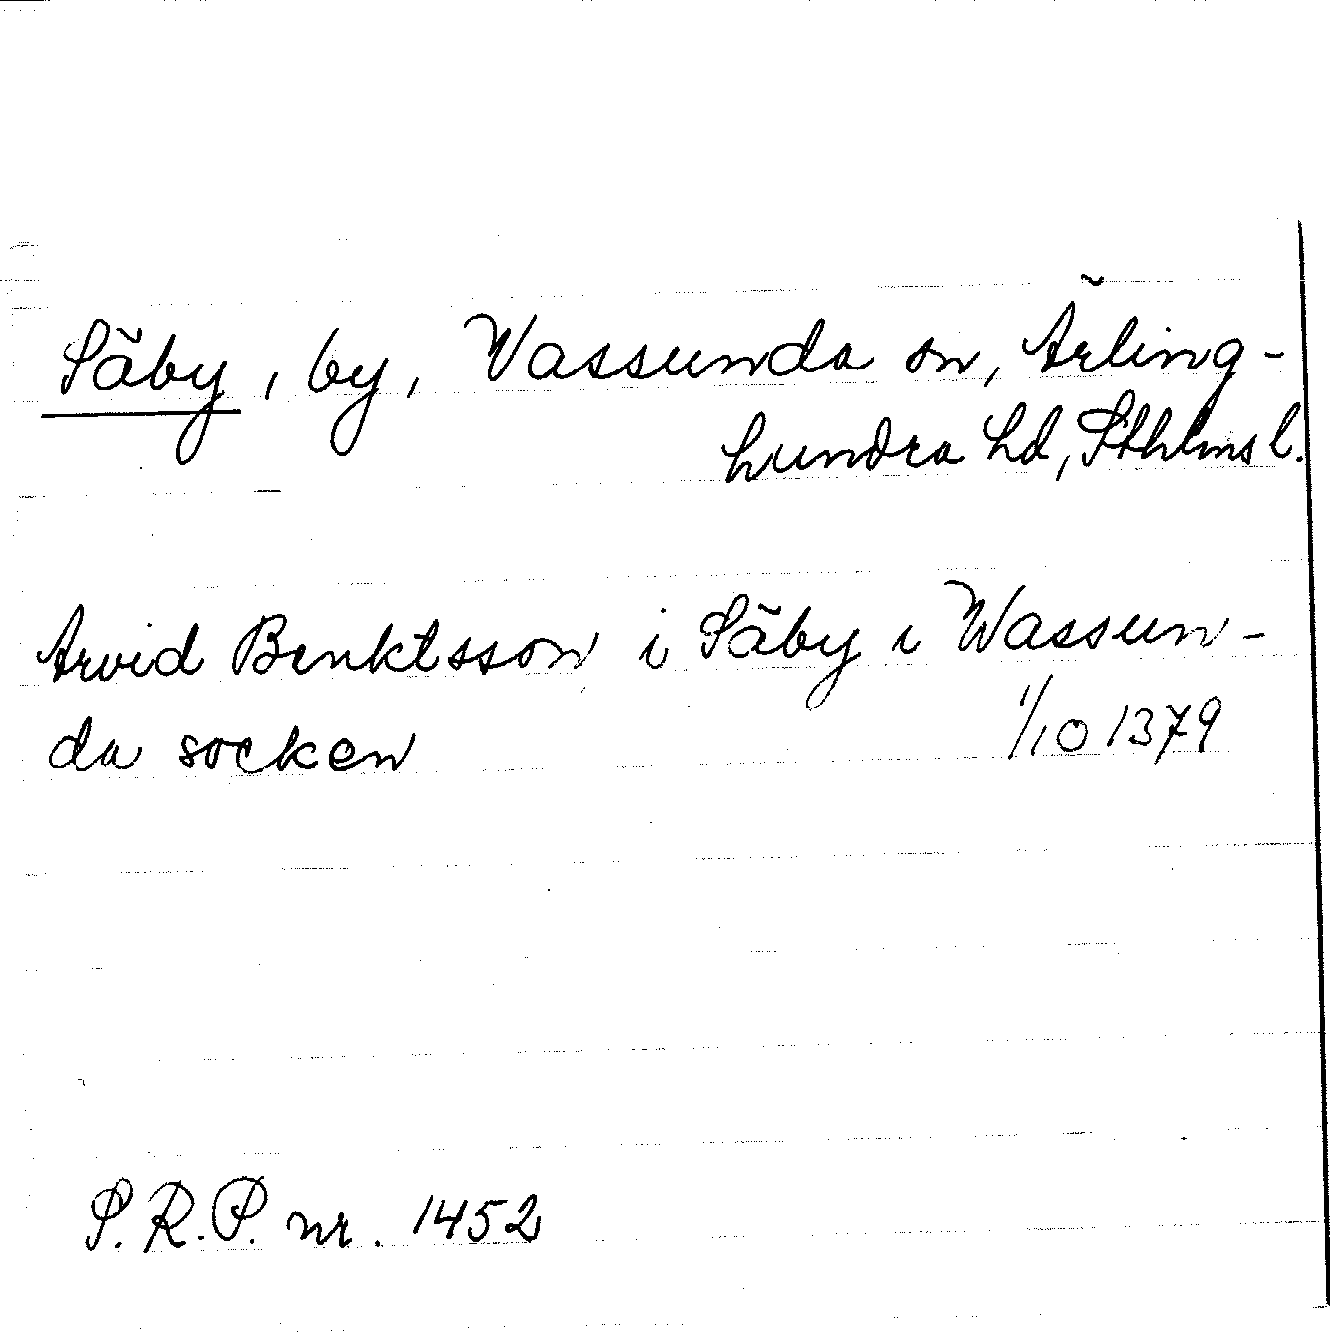 Säby, by, Wassunda sn, Ärling-
hundra hd, Sthlms l.
Arvid Benktsson i Säby i Wassun-
da socken 1/10 1379
S.R.P. nr. 1452